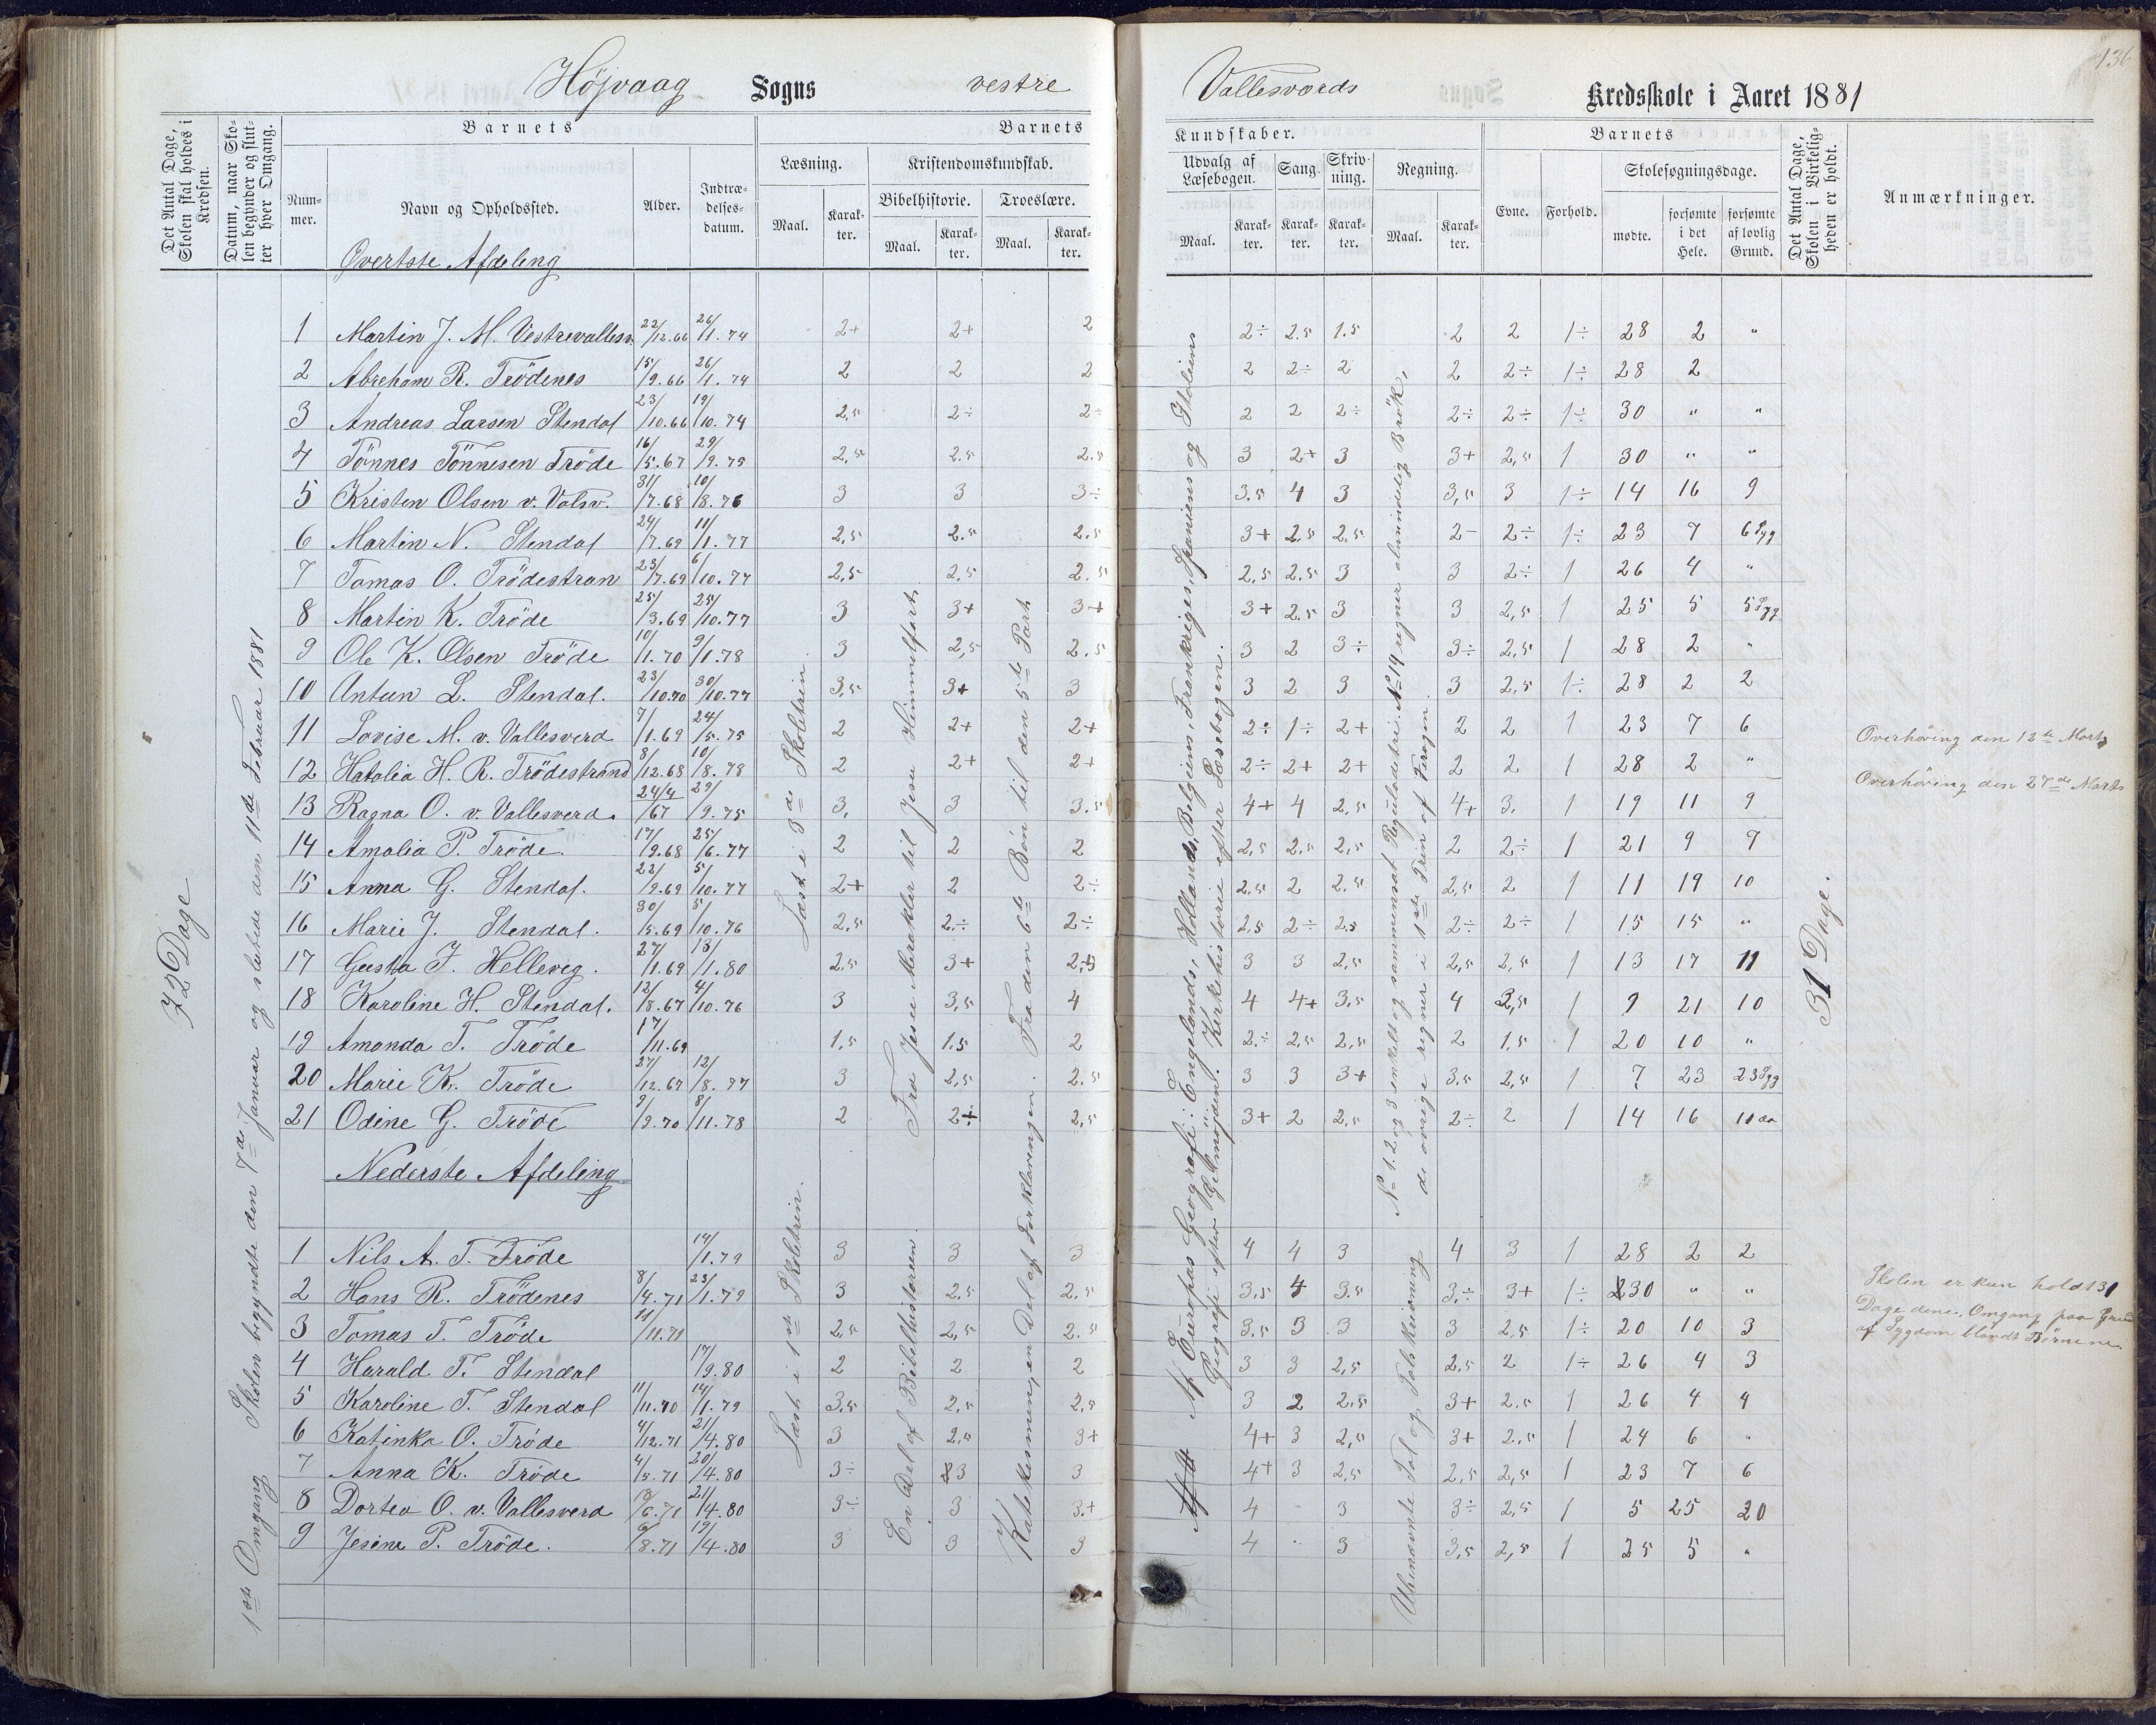 136
Höjvaag Sogns vestre Vallesværds Kredsskole i Aaret 1881
Det Antal Dage, Skolen skal holdes i Kredsen.
Datum, naar Skolen begynder og slutter hver Omgang.
Barnets
Nummer.
Navn og Opholdssted.
Alder.
Indtrædelsesdatum.
Barnets Kundskaber.
Læsning.
Maal.
Karakter.
Kristendomskundskab.
Bibelhistorie.
Maal.
Karakter.
Troeslære.
Maal.
Karakter.
Udvalg af Læsebogen.
Maal.
Karakter.
Sang.
Karakter.
Skrivning.
Karakter.
Regning.
Maal.
Karakter.
Barnets
Evne.
Forhold.
Skolesøgningsdage.
mødte.
forsømte i det Hele.
forsømte af lovlig Grund.
Det Antal Dage, Skolen i Virkeligheden er holdt.
Anmærkninger.
72 Dage
1ste Omgang Skolen begyndte den 7de Januar og sluttede den 11de Februar 1881
Overtste Afdeling
1 Martin J. M. Vestrevallesv. 22/12.66 26/1.74 2+ 2+ 2 2÷ 2.5 1.5 2 2 1÷ 28 2 "
2 Abreham R. Trödenes 15/9.66 26/1.74 2 2 2 2 2÷ 2 2 2÷ 1÷ 28 2
3 Andreas Larsen Stendal 23/10.66 19/10.74 2,5 2÷ 2÷ 2 2 2÷ 2÷ 2÷ 1÷ 30 " "
4 Tönnes Tönnesen Tröde 16/5.67 29/9.75 2,5 2.5 2.5 3 2+ 3 3+ 2,5 1 30 " "
5 Kristen Olsen v. Valsv. 31/7.68 10/8.76 3 3 3÷ 3.5 4 3 3,5 3 1÷ 14 16 9
6 Martin N. Stendal 24/7.69 11/1.77 2,5 2.5 2.5 3+ 2.5 2.5 2- 2÷ 1÷ 23 7 6 Syg
7 Tomas O. Trödestran 23/7.69 6/10.77 2,5 2,5 2.5 2,5 2.5 3 3 2÷ 1 26 4 "
8 Martin K. Tröde 25/3.69 25/10.77 3 3+ 3+ 3+ 2.5 3 3 2,5 1 25 5 5 Syg
9 Ole K. Olsen Tröde 10/1.70 9/1.78 3 2,5 2.5 3 2 3÷ 3÷ 2,5 1 28 2 "
10 Antun L. Stendal. 23/10.70 30/10.77 3,5 3+ 3 3 2 3 3 2,5 1÷ 28 2 2
11 Lovise M. v. Vallesverd 7/1.69 24/5.75 2 2+ 2+ 2÷ 1÷ 2+ 2 2 1 23 7 6
12 Hatalia H. R. Trödestrand 8/12.68 10/8.78 2 2+ 2+ 2÷ 2+ 2+ 2 2 1 28 2 "
13 Ragna O. v. Vallesverd. 24/4/67 29/9.75 3, 3 3.5 4+ 4 2,5 4+ 3. 1 19 11 9
14 Amalia P. Tröde. 17/9.68 25/6.77 2 2 2 2,5 2.5 2,5 2 2÷ 1 21 9 9
15 Anna G. Stendal. 22/9.69 5/10.77 2+ 2 2÷ 2,5 2 2.5 2,5 2 1 11 19 10
16 Marie J. Stendal. 30/5.69 5/10.76 2,5 2÷ 2÷ 2,5 2÷ 2,5 2÷ 2÷ 1 15 15 "
17 Gusta F. Helleveg. 27/1.69 13/1.80 2,5 3+ 3 3 2,5 2,5 2,5 1 13 17 11
18 Karoline H. Stendal. 12/8.67 4/10.76 3 3,5 4 4 4+ 3,5 4 3,5 1 9 21 10
19 Amanda T. Tröde 17/11.69 1,5 1.5 2 2÷ 2,5 2,5 2 1,5 1 20 10 "
20 Marie K. Tröde 27/12.67 12/8.77 3 2,5 2.5 3 3 3+ 3,5 2,5 1 7 23 23 Syg
21 Odine G. Tröde 9/9.70 8/11.78 2 2÷ 2,5 3+ 2 2,5 2÷ 2 1 14 16 11 do
Læst i 3de Skoletrin.
Fra Jesu Mirakler til Jesu Himmelfart.
Fra den 6te Bön til den 5te Part
Af Europas Geografi: Engelands, Hollands, Belgiens, Frankriges, Spaniens og Italiens
Geografi efter Geelmuyden. Kirkehistorie efter Læsebogen.
No 1.2 og 3 enkelt og sammensat Reguladetri. No 14 regner almindelig Brök,
de övrige regner i 1ste Trin af
31 Dage.
Overhöring den 12te Marts
Overhöring den 27de Marts
Nederste Afdeling
1 Nils A. T. Tröde 14/1.79 3 3 3 4 4 3 4 3 1 28 2 2
2 Hans R. Trödenes 8/4.71 23/1.79 3 2,5 2.5 3,5 4 3.5 3÷ 3+ 1÷ 30 " "
3 Tomas T. Tröde 11/11.71 2,5 2,5 2.5 3.5 3 3 3 2,5 1÷ 20 10 3
4 Harald T. Stendal 17/9.80 2 2 2 3 3 2,5 2.5 2 1÷ 26 4 3
5 Karoline T. Stendal 11/11.70 14/1.79 3,5 2,5 2,5 3 2 2.5 3+ 2.5 1 26 4 4
6 Katinka O. Tröde 4/12.71 21/4.80 3 2.5 3+ 4+ 3 2,5 3+ 2.5 1 24 6 "
7 Anna K. Tröde 4/5.71 20/4.80 3÷ 3 3 4+ 3 2.5 2,5 2,5 1 23 7 6
8 Dortea O. v. Vallesverd 18/6.71 21/4.80 3÷ 3 3+ 4 - 3 3÷ 2,5 1 5 25 20
9 Jesine P. Tröde. 6/8.71 19/4.80 3 3 3 4 - 3 3,5 2,5 1 25 5 "
Læst i 1ste Skoletrin.
En Del af Bibelhistorien.
Katekismusen, en Del af Forklaringen.
Ubenævnte Tal og Talskrivning
Skolen er kun holdt 31
Dage denne Omgang paa Grund
af Sygdom blandt Börnene.